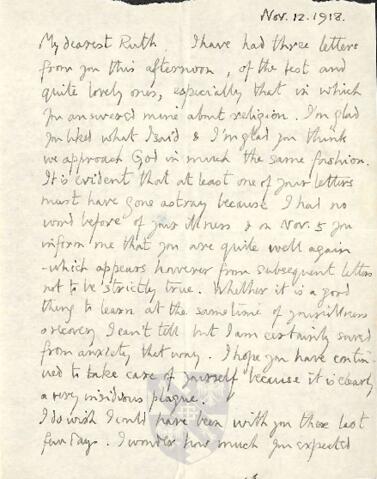 Nov. 12. 1918.
My dearest Ruth. I have had three letters
from you this afternoon, of the best and
quite lovely ones, especially that in which
you answered mine about religion. I'm glad
you liked what I said & I'm glad you think
we approach God in much the same fashion.
It is evident that at least one of your letters
must have gone astray because I had no
word before of your illness & on Nov. 5 you
inform me that you are quite well again
- which appears however from subsequent letters
not to be strictly true. Whether it is a good
thing to learn at the same time of your illness
& recovery I can't tell but I am certainly saved
from anxiety that way. I hope you have contin-
ued to take care of yourself because it is clearly
a very insidious plague.
I do wish I could have been with you these last
few days. I wonder how much you expected